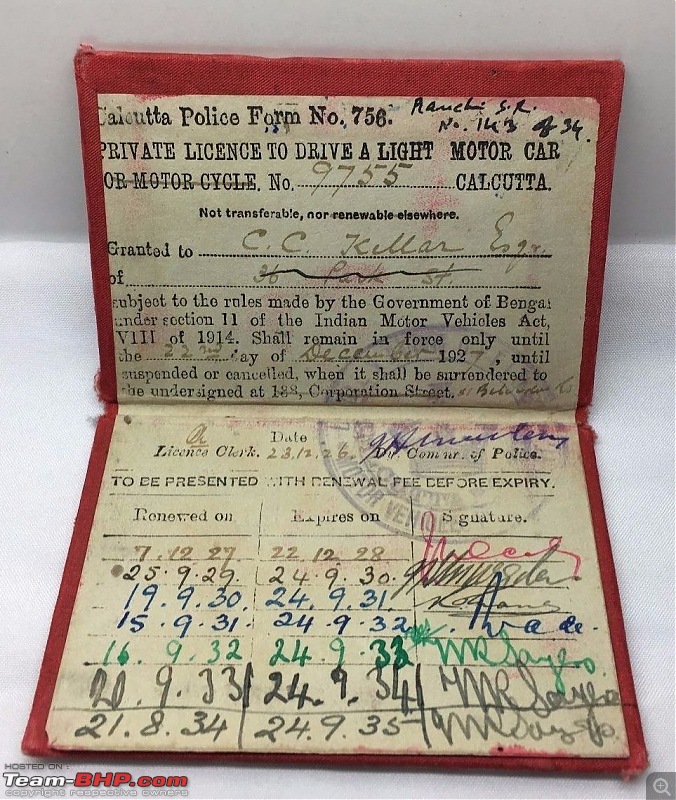 Calcutta Police Form No. 756. Ranchi S.R.
No. 143 of 34.
PRIVATE LICENCE TO DRIVE A LIGHT MOTOR CAR
OR MOTOR CYCLE. No. 9755 CALCUTTA.
Not transferable, nor renewable elsewhere.
Granted to C. C. Kellar Esqr.
of 36 Park St.
subject to the rules made by the Government of Bengal
under section 11 of the Indian Motor Vehicles Act,
VIII of 1914. Shall remain in force only until
the 22nd day of December 1927, until
suspended or cancelled, when it shall be surrendered to
the undersigned at 138, Corporation Street.
Date
Licence Clerk. 23.12.26. Dy Comnr. of Police.
MOTOR VEHICLES
TO BE PRESENTED WITH RENEWAL FEE BEFORE EXPIRY.
Renewed on Expires on Signature.
7.12.27 22.12.28
25.9.29. 24.9.30.
19.9.30. 24.9.31.
15.9.31. 24.9.32
16.9.32 24.9.33
21.9.33 24.9.34
21.8.34 24.9.35
HOSTED ON :
Team-BHP.com
copyright respective owners